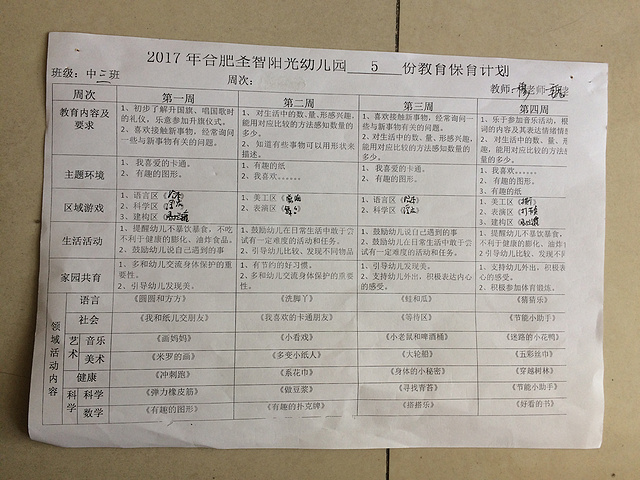 2017 年合肥圣智阳光幼儿园 5 份教育保育计划
班级：中二班 周次： 教师 老师
周次 第一周 第二周 第三周 第四周
教育内容及要求
1、初步了解升国旗、唱国歌时的礼仪，乐意参加升旗仪式。
2、喜欢接触新事物，经常询问一些与新事物有关的问题。
1、对生活中的数、量、形感兴趣，能用对应比较的方法感知数量的多少。
2、知道有些事物可以用形状来描述。
1、喜欢接触新事物，经常询问一些与新事物有关的问题。
2、对生活中的数、量、形感兴趣，能用对应比较的方法感知数量的多少。
1、乐于参加音乐活动，根
词的内容及其表达情绪情
2、对生活中的数、量、形
趣，能用对应比较的方法感
量的多少。
主题环境
1、我喜爱的卡通。
2、有趣的图形。
1、有趣的纸
2、我喜欢……
1、我喜爱的卡通。
2、有趣的图形。
1、我喜欢……
2、有趣的图形。
3、有趣的纸
区域游戏
1、语言区
2、科学区
3、建构区
1、美工区
2、表演区
1、语言区
2、科学区
1、美工区
2、表演区
3、建构区
生活活动
1、提醒幼儿不暴饮暴食，不吃不利于健康的膨化、油炸食品。
2、鼓励幼儿说自己遇到的事
1、鼓励幼儿在日常生活中敢于尝试有一定难度的活动和任务。
2、引导幼儿比较、发现不同物品
1、鼓励幼儿说自己遇到的事
2、鼓励幼儿在日常生活中敢于尝试有一定难度的活动和任务。
1、提醒幼儿不暴饮暴食，
不利于健康的膨化、油炸
2、引导幼儿比较、发现不
家园共育
1、多和幼儿交流身体保护的重要性。
2、引导幼儿发现美。
1、有节约的好习惯。
2、多和幼儿交流身体保护的重要性。
1、引导幼儿发现美。
2、支持幼儿外出，积极表达内心的感受。
1、支持幼儿外出，积极表
心的感受。
2、积极参加体育锻炼。
领域活动内容
语言 《圆圆和方方》 《洗脚丫》 《蛙和瓜》 《猜猜乐》
社会 《我和纸儿交朋友》 《我喜欢的卡通朋友》 《等待区》 《节能小助手》
艺术 音乐 《画妈妈》 《小看戏》 《小老鼠和啤酒桶》 《迷路的小花鸭》
美术 《米罗的画》 《多变小纸人》 《大轮船》 《五彩丝巾》
健康 《冲刺跑》 《系花巾》 《身体的小秘密》 《穿越树林》
科学 科学 《弹力橡皮筋》 《做豆浆》 《寻找青苔》 《节能小助手》
数学 《有趣的图形》 《有趣的扑克牌》 《搭搭乐》 《好看的书》